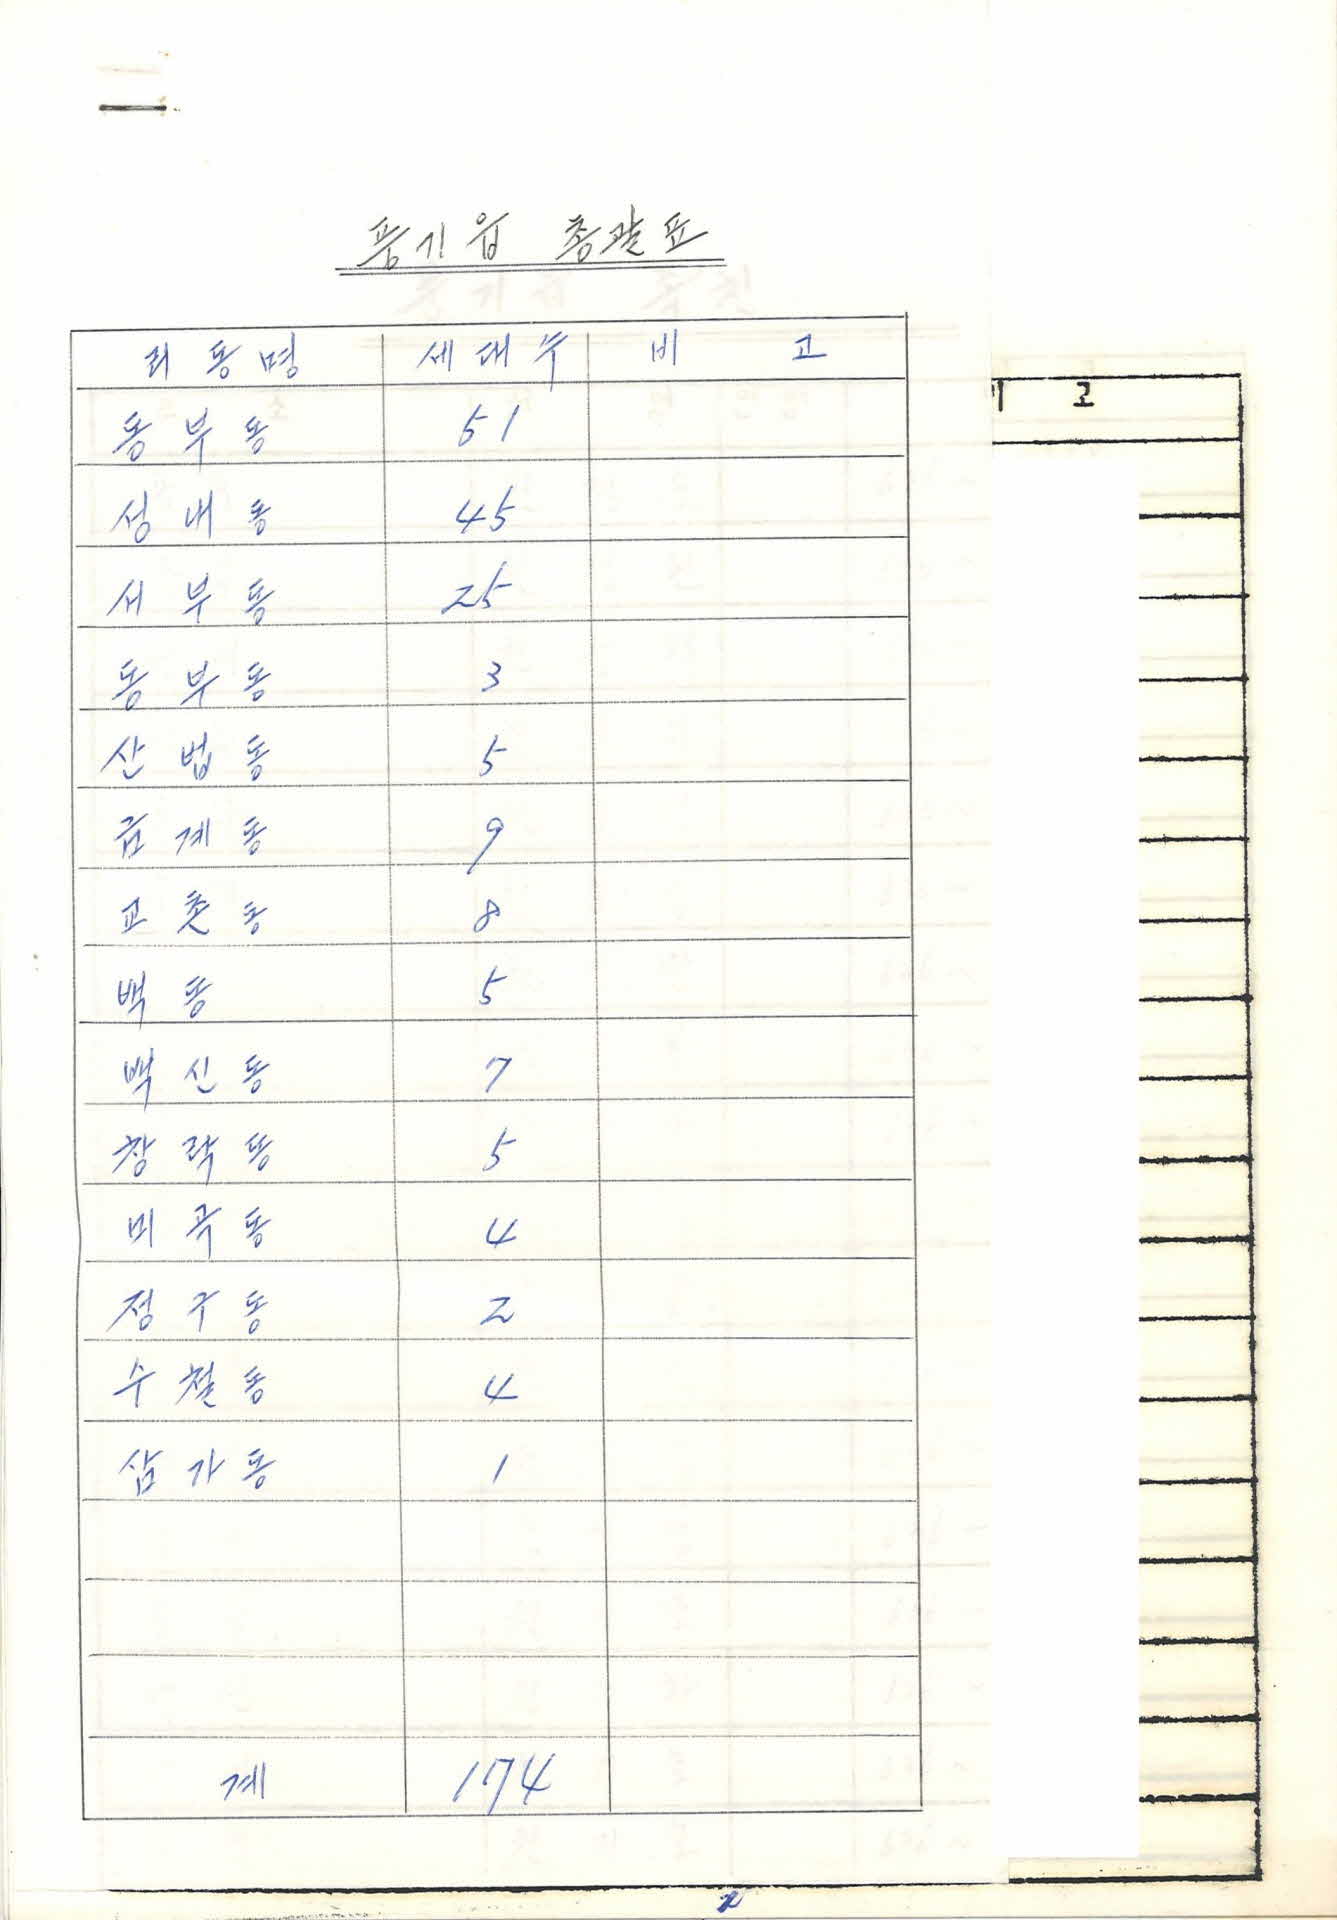 풍기읍 총괄표
리동명 세대수 비 고
동부동 51
성내동 45
서부동 25
동부동 3
산법동 5
금계동 9
교촌동 8
백동 5
백신동 7
창락동 5
미곡동 4
정구동 2
수철동 4
삼가동 1
계 174
고